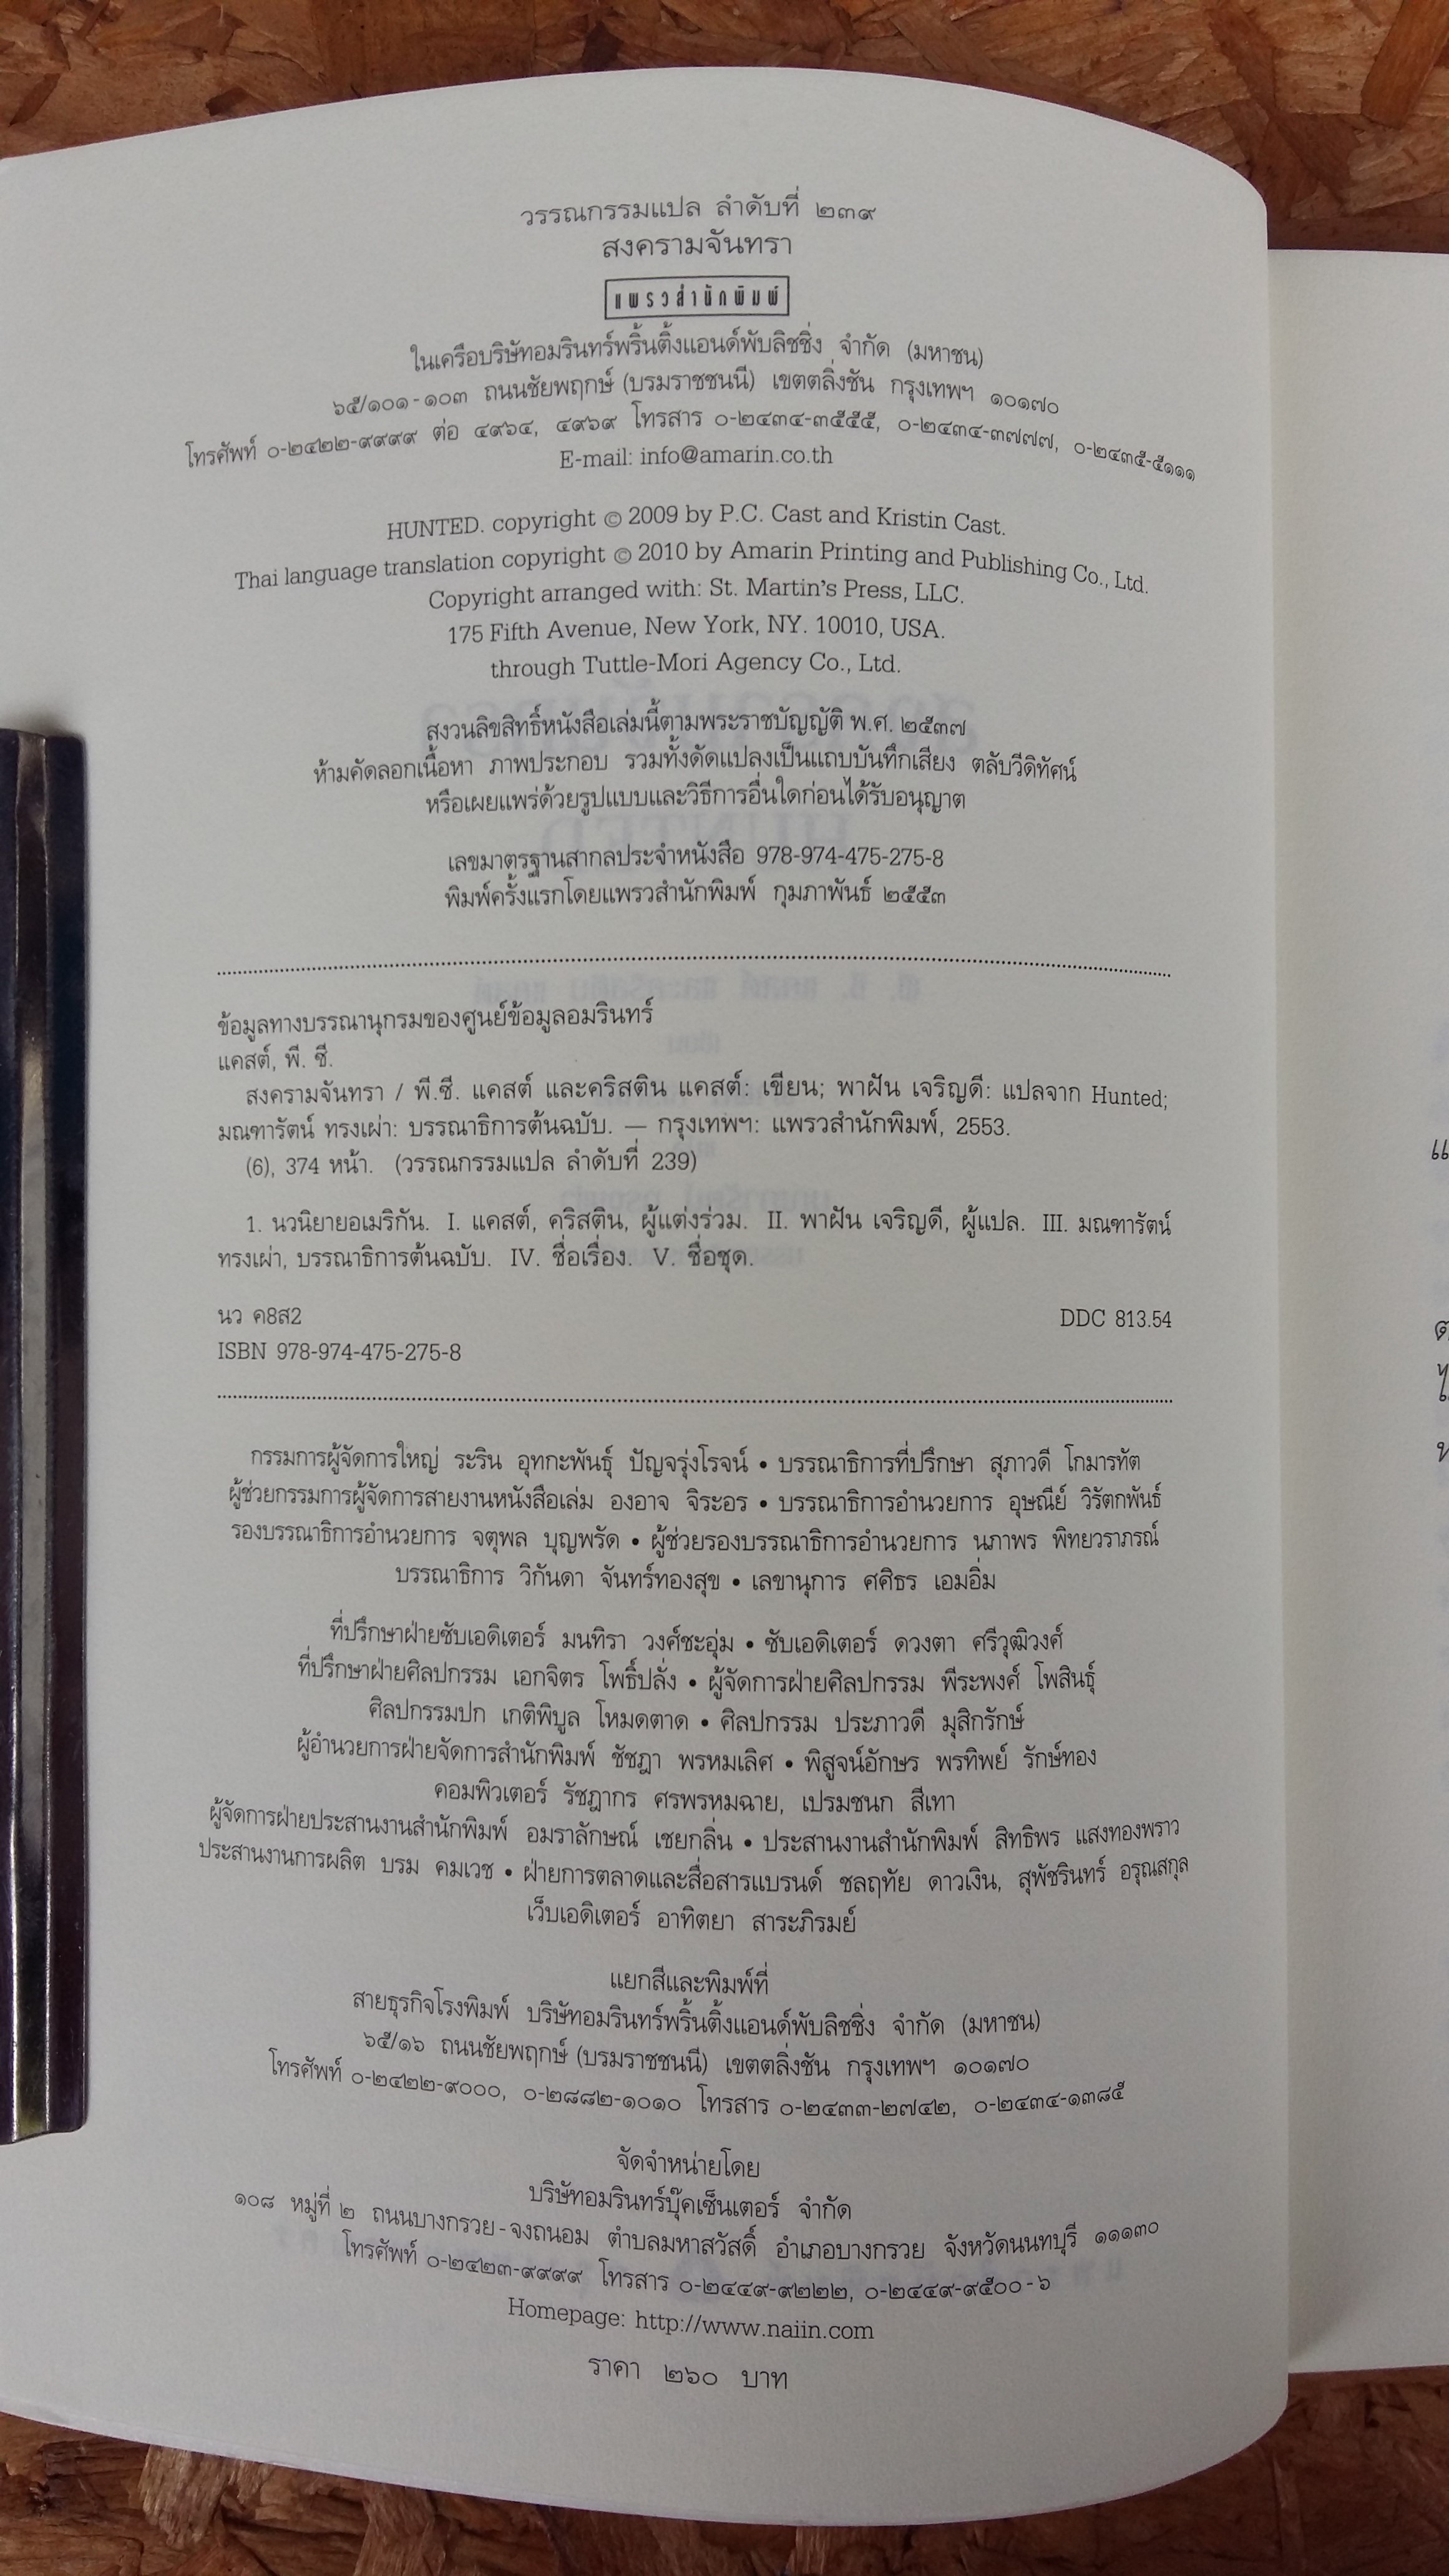 วรรณกรรมแปล ลำดับที่ ๒๓๙
สงครามจันทรา
แพรวสำนักพิมพ์
ในเครือบริษัทอมรินทร์พริ้นติ้งแอนด์พับลิชชิ่ง จำกัด (มหาชน)
๖๕/๑๐๑-๑๐๓ ถนนชัยพฤกษ์ (บรมราชชนนี) เขตตลิ่งชัน กรุงเทพฯ ๑๐๑๗๐
โทรศัพท์ ๐-๒๔๒๒-๙๙๙๙ ต่อ ๔๙๖๔, ๔๙๖๙ โทรสาร ๐-๒๔๓๔-๓๕๕๕, ๐-๒๔๓๔-๓๗๗๗, ๐-๒๔๓๕-๕๑๑๑
E-mail: info@amarin.co.th
HUNTED. copyright © 2009 by P.C. Cast and Kristin Cast.
Thai language translation copyright © 2010 by Amarin Printing and Publishing Co., Ltd.
Copyright arranged with: St. Martin's Press, LLC.
175 Fifth Avenue, New York, NY. 10010, USA.
through Tuttle-Mori Agency Co., Ltd.
สงวนลิขสิทธิ์หนังสือเล่มนี้ตามพระราชบัญญัติ พ.ศ. ๒๕๓๗
ห้ามคัดลอกเนื้อหา ภาพประกอบ รวมทั้งดัดแปลงเป็นแถบบันทึกเสียง ตลับวีดิทัศน์
หรือเผยแพร่ด้วยรูปแบบและวิธีการอื่นใดก่อนได้รับอนุญาต
เลขมาตรฐานสากลประจำหนังสือ 978-974-475-275-8
พิมพ์ครั้งแรกโดยแพรวสำนักพิมพ์ กุมภาพันธ์ ๒๕๕๓
ข้อมูลทางบรรณานุกรมของศูนย์ข้อมูลอมรินทร์
แคสต์, พี. ซี.
สงครามจันทรา / พี.ซี. แคสต์ และคริสติน แคสต์: เขียน; พาฝัน เจริญดี: แปลจาก Hunted;
มณฑารัตน์ ทรงเผ่า: บรรณาธิการต้นฉบับ. — กรุงเทพฯ: แพรวสำนักพิมพ์, 2553.
(6), 374 หน้า. (วรรณกรรมแปล ลำดับที่ 239)
1. นวนิยายอเมริกัน. I. แคสต์, คริสติน, ผู้แต่งร่วม. II. พาฝัน เจริญดี, ผู้แปล. III. มณฑารัตน์
ทรงเผ่า, บรรณาธิการต้นฉบับ. IV. ชื่อเรื่อง. V. ชื่อชุด.
นว ค8ส2 DDC 813.54
ISBN 978-974-475-275-8
กรรมการผู้จัดการใหญ่ ระริน อุทกะพันธุ์ ปัญจรุ่งโรจน์ • บรรณาธิการที่ปรึกษา สุภาวดี โกมารทัต
ผู้ช่วยกรรมการผู้จัดการสายงานหนังสือเล่ม องอาจ จิระอร • บรรณาธิการอำนวยการ อุษณีย์ วิรัตกพันธ์
รองบรรณาธิการอำนวยการ จตุพล บุญพรัด • ผู้ช่วยรองบรรณาธิการอำนวยการ นภาพร พิทยวราภรณ์
บรรณาธิการ วิกันดา จันทร์ทองสุข • เลขานุการ ศศิธร เอมอิ่ม
ที่ปรึกษาฝ่ายซับเอดิเตอร์ มนทิรา วงศ์ชะอุ่ม • ซับเอดิเตอร์ ดวงตา ศรีวุฒิวงศ์
ที่ปรึกษาฝ่ายศิลปกรรม เอกจิตร โพธิ์ปลั่ง • ผู้จัดการฝ่ายศิลปกรรม พีระพงศ์ โพสินธุ์
ศิลปกรรมปก เกติพิบูล โหมดตาด • ศิลปกรรม ประภาวดี มุสิกรักษ์
ผู้อำนวยการฝ่ายจัดการสำนักพิมพ์ ชัชฎา พรหมเลิศ • พิสูจน์อักษร พรทิพย์ รักษ์ทอง
คอมพิวเตอร์ รัชฎากร ศรพรหมฉาย, เปรมชนก สีเทา
ผู้จัดการฝ่ายประสานงานสำนักพิมพ์ อมราลักษณ์ เชยกลิ่น • ประสานงานสำนักพิมพ์ สิทธิพร แสงทองพราว
ประสานงานการผลิต บรม คมเวช • ฝ่ายการตลาดและสื่อสารแบรนด์ ชลฤทัย ดาวเงิน, สุพัชรินทร์ อรุณสกุล
เว็บเอดิเตอร์ อาทิตยา สาระภิรมย์
แยกสีและพิมพ์ที่
สายธุรกิจโรงพิมพ์ บริษัทอมรินทร์พริ้นติ้งแอนด์พับลิชชิ่ง จำกัด (มหาชน)
๖๕/๑๖ ถนนชัยพฤกษ์ (บรมราชชนนี) เขตตลิ่งชัน กรุงเทพฯ ๑๐๑๗๐
โทรศัพท์ ๐-๒๔๒๒-๙๐๐๐, ๐-๒๘๘๒-๑๐๑๐ โทรสาร ๐-๒๔๓๓-๒๗๔๒, ๐-๒๔๓๔-๑๓๘๕
จัดจำหน่ายโดย
บริษัทอมรินทร์บุ๊คเซ็นเตอร์ จำกัด
๑๐๘ หมู่ที่ ๒ ถนนบางกรวย-จงถนอม ตำบลมหาสวัสดิ์ อำเภอบางกรวย จังหวัดนนทบุรี ๑๑๑๓๐
โทรศัพท์ ๐-๒๔๒๓-๙๙๙๙ โทรสาร ๐-๒๔๔๙-๙๒๒๒, ๐-๒๔๔๙-๙๕๐๐-๖
Homepage: http://www.naiin.com
ราคา ๒๖๐ บาท